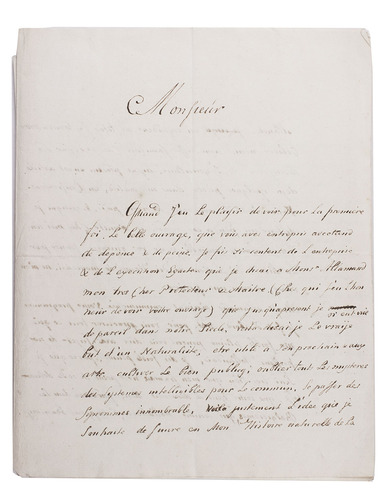 Monsieur
Quand j'eu Le plaisir de voir pour La premiere
foi Le belle ouvrage, que vous avez entrepris avec tand
de depense & de peine, je fus si content de L'entreprise
& de L'execution egale, que je disai a Mons. Allamand
mon tres Cher Protecteur & Maitre (Ches qui j'eu L'hon
neur de voir votre ouvrage) que jusqu'apresent je n'ai vu
de pareil dans notre Siecle, voila disai je Le vraije
but d'un Naturaliste, etre utile à son prochain & aux
arts, cultiver Le bien publiq, oublier tout Les mysteres
des Systemes intelligibles pour Le commun, se passer des
Synonimes innombrable, voila justement L'idee que je
Souhaite de suivre en Mon Histoire naturelle de La